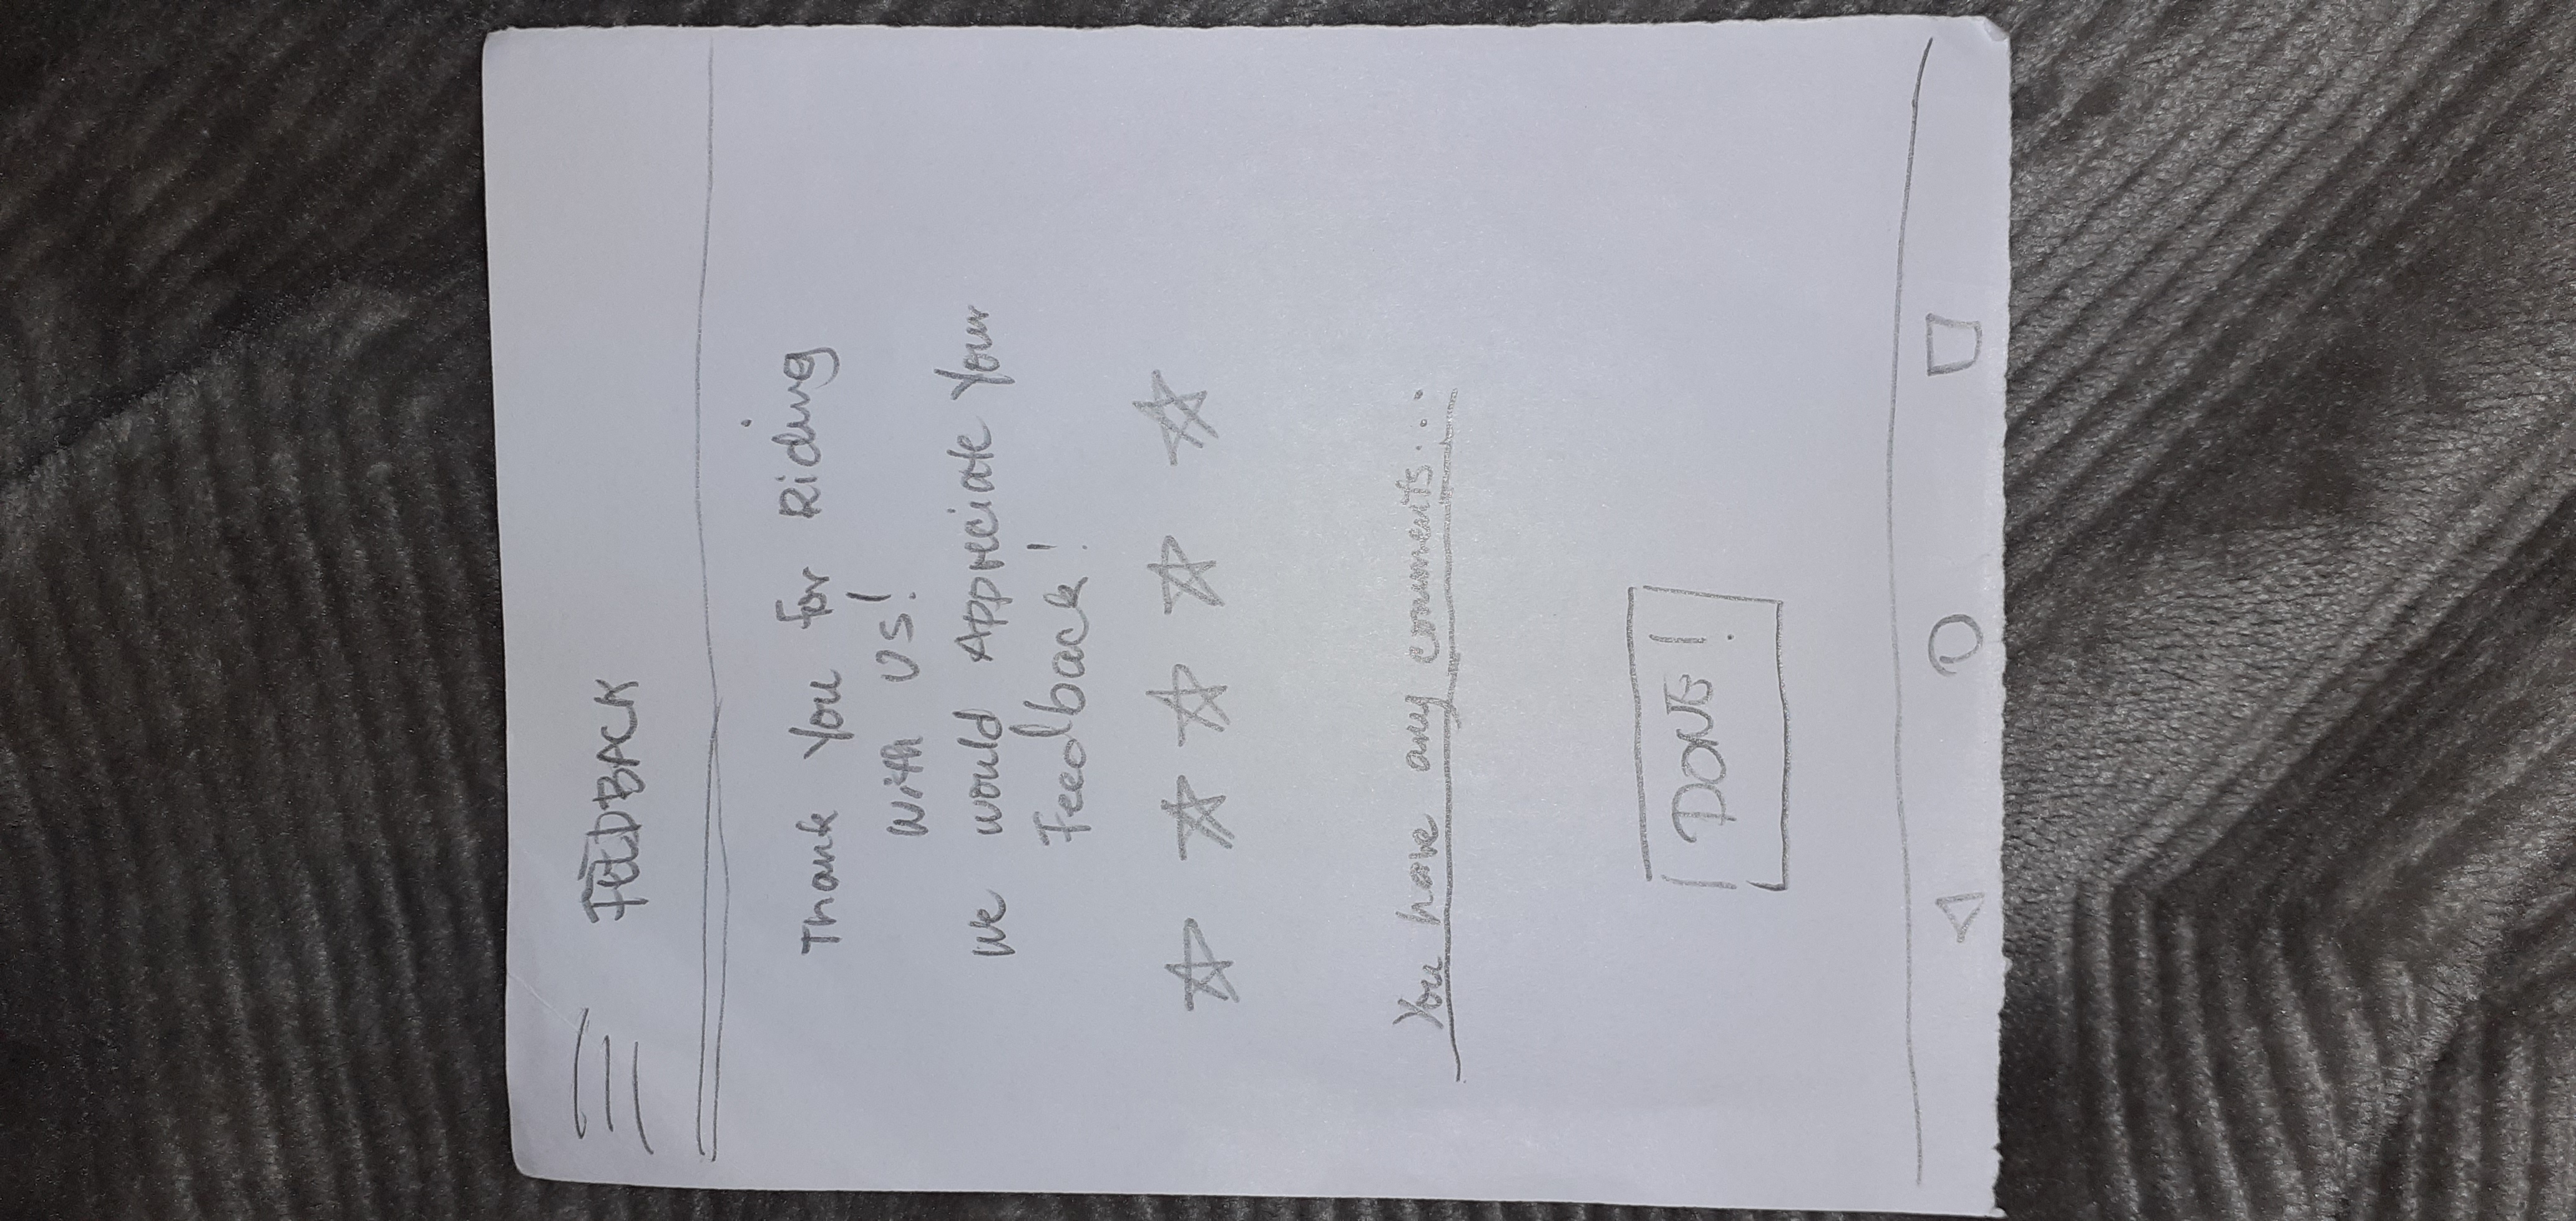 FEEDBACK
Thank You For Riding
With US!
We would Appreciate Your
Feedback!
You have any comments...
DONE!